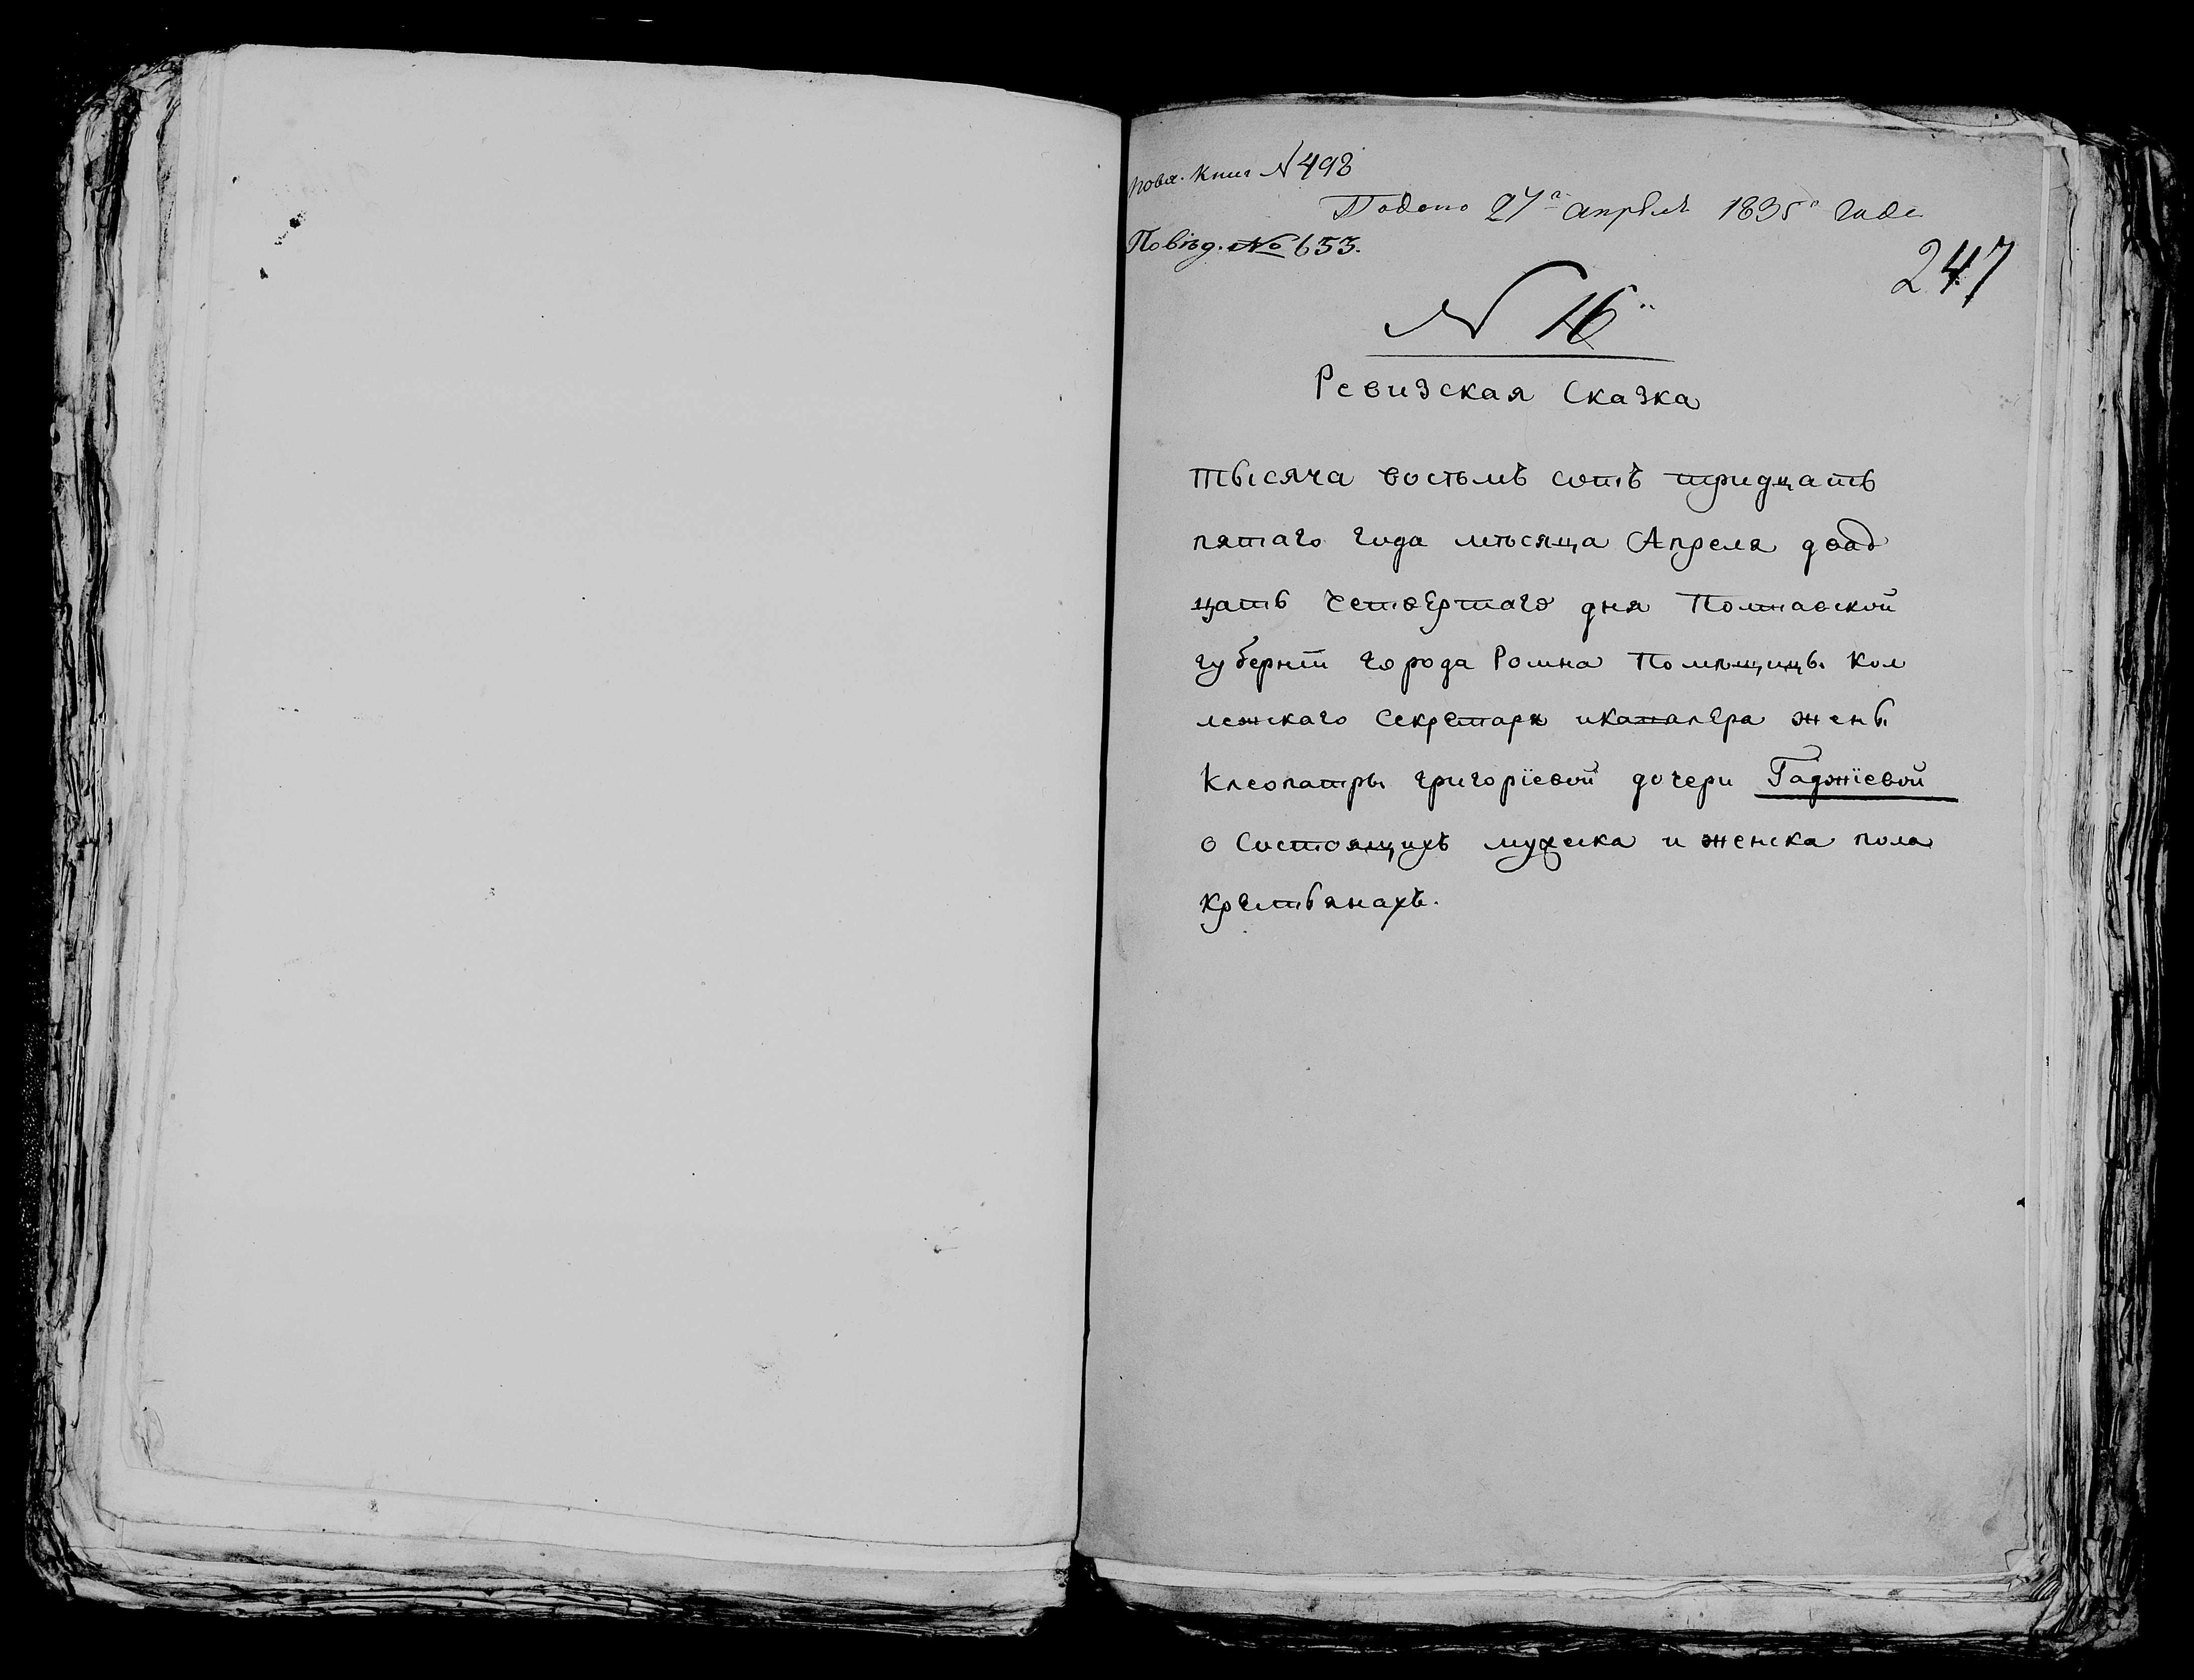 пова. книг №498
Подано 27го апреля 1835го года
По вѣд. № 653.
247
№ 16й
Ревизская Сказка
тысяча восъмъ сотъ тридцать
пятаго года мѣсяца Апреля двад
цать четвертаго дня Полтавской
губерніи города Ромна Помещицы кол
лежскаго Секретаря икавалера жены
Клеопатры григоріевой дочери Гаджіевой
о Состоящихъ мужска и женска пола
крестьянахъ.